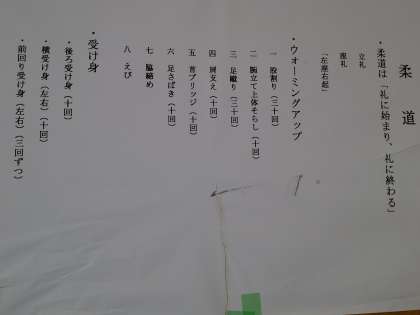 柔道
・柔道は「礼に始まり、礼に終わる」
立礼
座礼
「左座右起」
・ウォーミングアップ
一 股割り（三十回）
二 腕立て上体そらし（十回）
三 足蹴り（三十回）
四 肩支え（十回）
五 首ブリッジ（十回）
六 足さばき（十回）
七 脇締め
八 えび
・受け身
・後ろ受け身（十回）
・横受け身（左右）（十回）
・前回り受け身（左右）（三回ずつ）